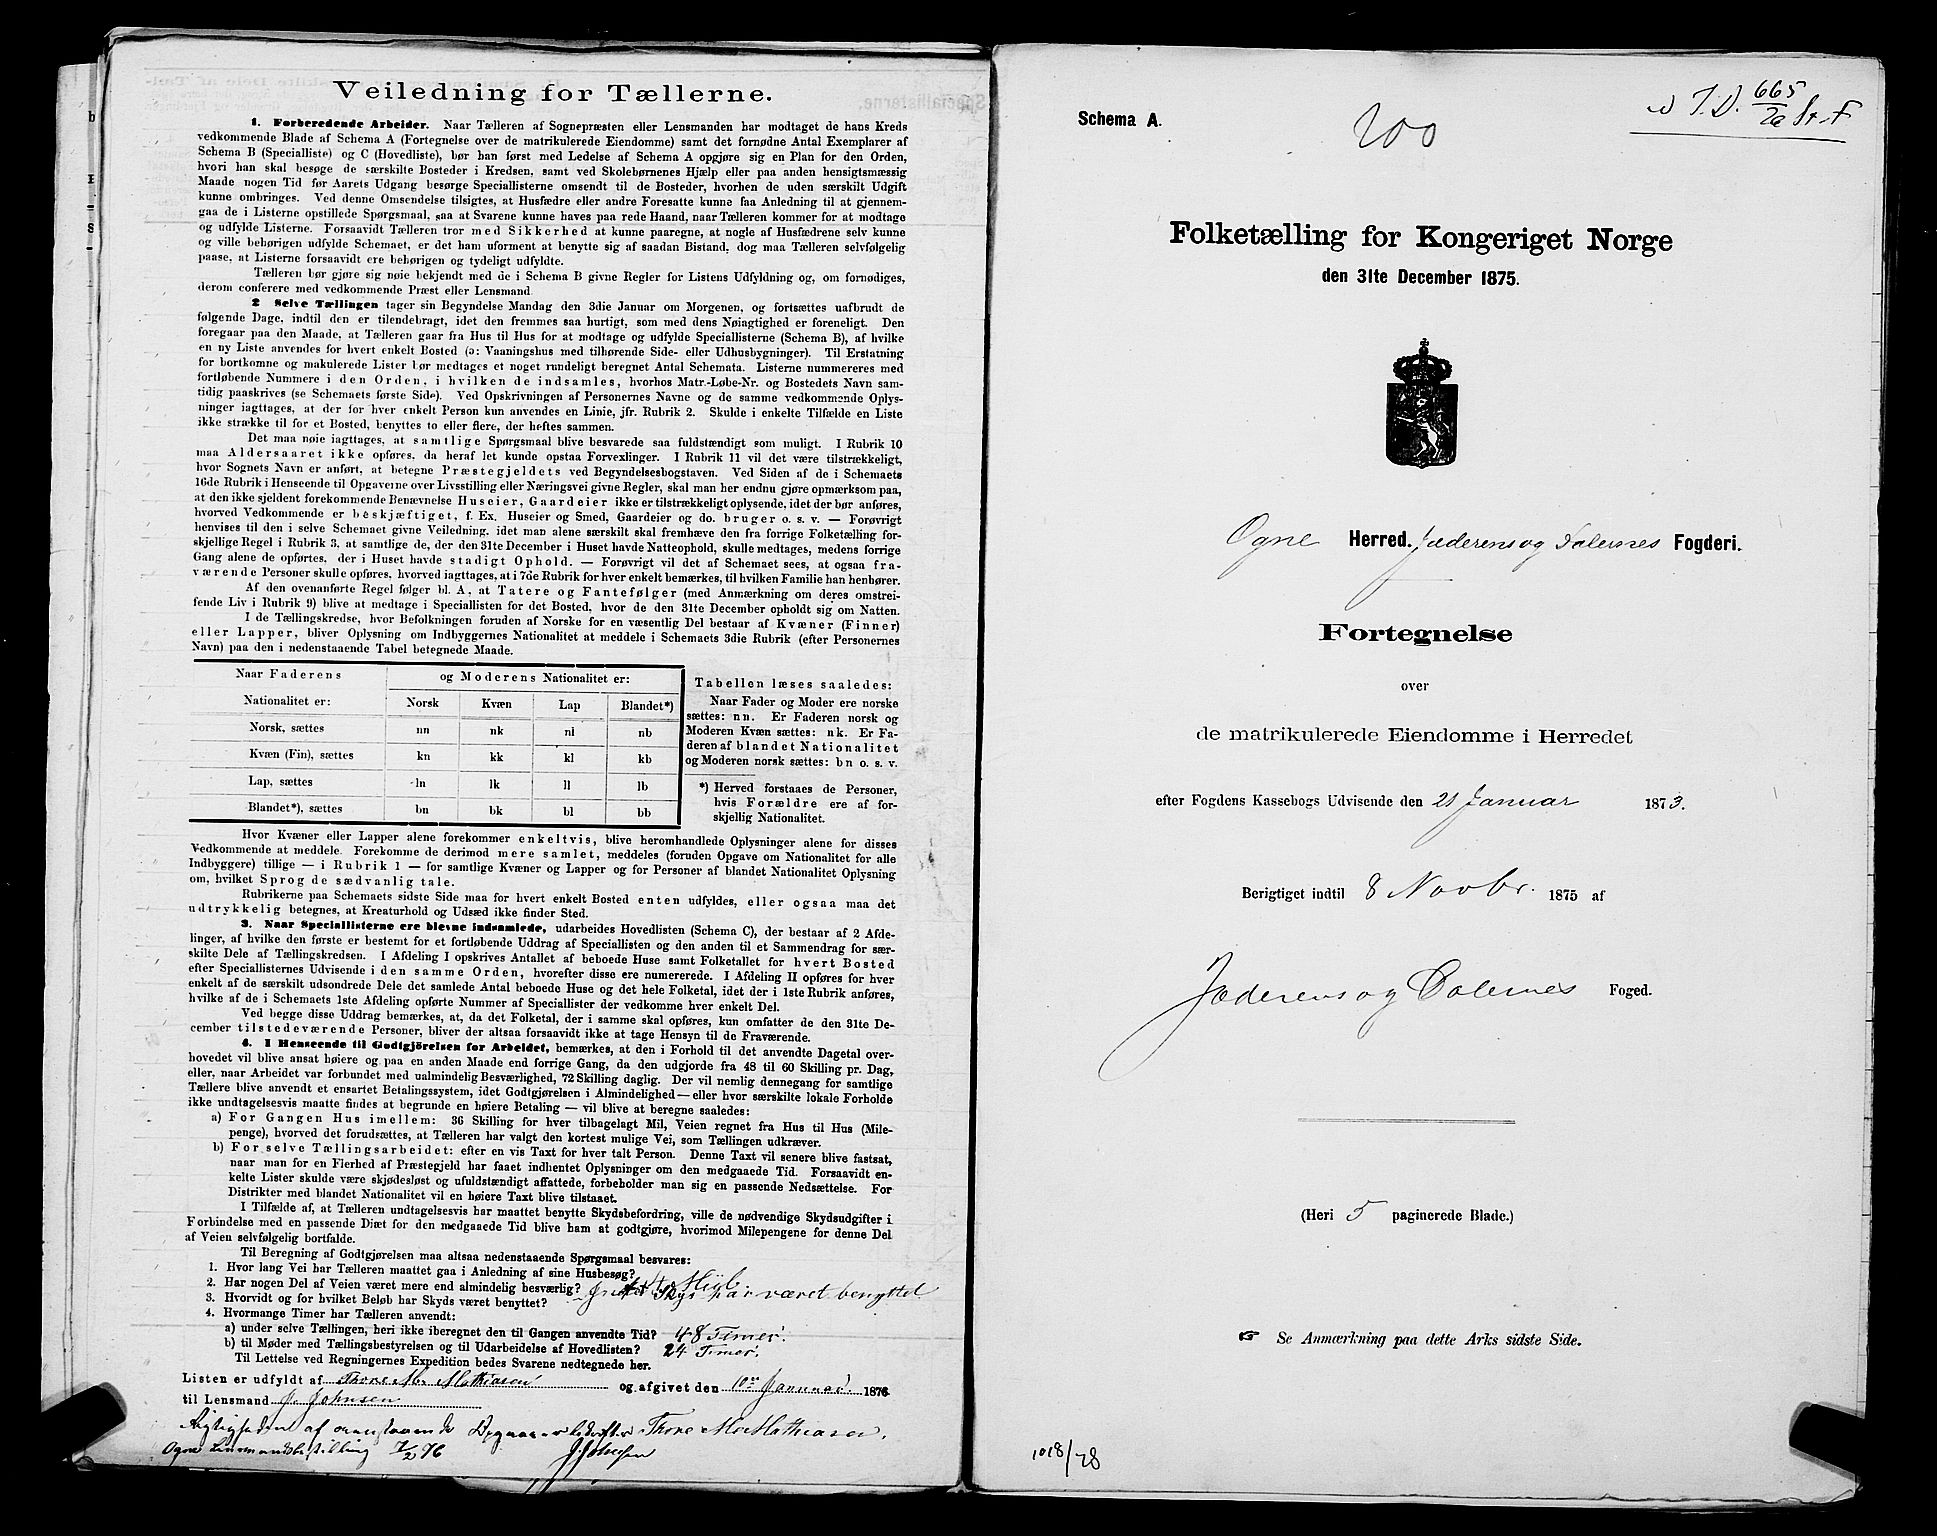 Veiledning for Tællerne.
1. Forberedende Arbeider. Naar Tælleren af Sognepræsten eller Lensmanden har modtaget de hans Kreds
vedkommende Blade af Schema A (Fortegnelse over de matrikulerede Eiendomme) samt det fornødne Antal Exemplarer af
Schema B (Specialliste) og C (Hovedliste), bør han først med Ledelse af Schema A opgjøre sig en Plan for den Orden,
hvori han skal besøge de særskilte Bosteder i Kredsen, samt ved Skolebørnenes Hjælp eller paa anden hensigtsmæssig
Maade nogen Tid før Aarets Udgang besørge Speciallisterne omsendt til de Bosteder, hvorhen de uden særskilt Udgift
kunne ombringes. Ved denne Omsendelse tilsigtes, at Husfædre eller andre Foresatte kunne faa Anledning til at gjennem-
gaa de i Listerne opstillede Spørgsmaal, saa at Svarene kunne haves paa rede Haand, naar Tælleren kommer for at modtage
og udfylde Listerne. Forsaavidt Tælleren tror med Sikkerhed at kunne paaregne, at nogle af Husfædrene selv kunne
og ville behørigen udfylde Schemaet, er det ham uforment at benytte sig af saadan Bistand, dog maa Tælleren selvfølgelig
paase, at Listerne forsaavidt ere behørigen og tydeligt udfyldte.
Tælleren bør gjøre sig nøie bekjendt med de i Schema B givne Regler for Listens Udfyldning og, om fornødiges,
derom conferere med vedkommende Præst eller Lensmand.
2 Selve Tællingen tager sin Begyndelse Mandag den 3die Januar om Morgenen, og fortsættes uafbrudt de
følgende Dage, indtil den er tilendebragt, idet den fremmes saa hurtigt, som med dens Nøiagtighed er foreneligt. Den
foregaar paa den Maade, at Tælleren gaar fra Hus til Hus for at modtage og udfylde Speciallisterne (Schema B), af hvilke
en ny Liste anvendes for hvert enkelt Bosted (ɔ: Vaaningshus med tilhørende Side- eller Udhusbygninger). Til Erstatning
for bortkomne og makulerede Lister bør medtages et noget rundeligt beregnet Antal Schemata. Listerne nummereres med
fortløbende Nummere i den Orden, i hvilken de indsamles, hvorhos Matr.-Løbe-Nr. og Bostedets Navn sam-
tidig paaskrives (se Schemaets første Side). Ved Opskrivningen af Personernes Navne og de samme vedkommende Oplys-
ninger iagttages, at der for hver enkelt Person kun anvendes en Linie, jfr. Rubrik 2. Skulde i enkelte Tilfælde en Liste
ikke strække til for et Bosted, benyttes to eller flere, der heftes sammen.
Det maa nøie iagttages, at samtlige Spørgsmaal blive besvarede saa fuldstændigt som muligt. I Rubrik 10
maa Aldersaaret ikke opføres, da heraf let kunde opstaa Forvexlinger. I Rubrik 11 vil det være tilstrækkeligt,
hvor Sognets Navn er anført, at betegne Præstegjeldets ved Begyndelsesbogstaven. Ved Siden af de i Schemaets
16de Rubrik i Henseende til Opgaverne over Livsstilling eller Næringsvei givne Regler, skal man her endnu gjøre opmærksom paa,
at den ikke sjeldent forekommende Benævnelse Huseier, Gaardeier ikke er tilstrækkeligt oplysende, idet der bør anføres,
hvorved Vedkommende er beskjæftiget, f. Ex. Huseier og Smed, Gaardeier og do. bruger o. s. v. — Forøvrigt
henvises til den i selve Schemaet givne Veiledning, idet man alene særskilt skal fremhæve den fra forrige Folketælling for-
skjellige Regel i Rubrik 3, at samtlige de, der den 31te December i Huset havde Natteophold, skulle medtages, medens forrige
Gang alene de opførtes, der i Huset havde stadigt Ophold. — Forøvrigt vil det af Schemaet sees, at ogsaa fra-
værende Personer skulle opføres, hvorved iagttages, at i 7de Rubrik for hver enkelt bemærkes, til hvilken Familie han henhører.
Af den ovenanførte Regel følger bl. A., at Tatere og Fantefølger (med Anmærkning om deres omstrei-
fende Liv i Rubrik 9) blive at medtage i Speciallisten for det Bosted, hvor de den 31te December opholdt sig om Natten.
I de Tællingskredse, hvor Befolkningen foruden af Norske for en væsentlig Del bestaar af Kvæner (Finner)
eller Lapper, bliver Oplysning om Indbyggernes Nationalitet at meddele i Schemaets 3die Rubrik (efter Personernes
Navn) paa den i nedenstaaende Tabel betegnede Maade.
Naar Faderens og Moderens Nationalitet er:
Nationalitet er: Norsk Kvæn Lap Blandet*)
Norsk, sættes nn nk nl nb
Kvæn (Fin), sættes kn kk kl kb
Lap, sættes ln lk ll lb
Blandet*), sættes bn bk bl bb
Tabellen læses saaledes:
Naar Fader og Moder ere norske
sættes: nn. Er Faderen norsk og
Moderen Kvæn sættes: nk. Er Fa-
deren af blandet Nationalitet
og Moderen norsk sættes: bn o. s. v.
*) Herved forstaaes de Personer,
hvis Forældre ere af for-
skjellig Nationalitet.
Hvor Kvæner eller Lapper alene forekommer enkeltvis, blive heromhandlede Oplysninger alene for disses
Vedkommende at meddele. Forekomme de derimod mere samlet, meddeles (foruden Opgave om Nationalitet for alle
Indbyggere) tillige — i Rubrik 1 — for samtlige Kvæner og Lapper og for Personer af blandet Nationalitet Oplysning
om, hvilket Sprog de sædvanlig tale.
Rubrikerne paa Schemaets sidste Side maa for hvert enkelt Bosted enten udfyldes, eller ogsaa maa det
udtrykkelig betegnes, at Kreaturhold og Udsæd ikke finder Sted.
3. Naar Speciallisterne ere blevne indsamlede, udarbeides Hovedlisten (Schema C), der bestaar af 2 Afde-
linger, af hvilke den første er bestemt for et fortløbende Uddrag af Speciallisten og den anden til et Sammendrag for sær-
skilte Dele af Tællingskredsen. I Afdeling I opskrives Antallet af beboede Huse samt Folketallet for hvert Bosted
efter Speciallisternes Udvisende i den samme Orden, hvorefter disse ere numererede. I Afdeling II opføres for hver
enkelt af de særskilt udsondrede Dele det samlede Antal beboede Huse og det hele Folketal, idet der i 1ste Rubrik anføres,
hvilke af de i Schemaets 1ste Afdeling opførte Nummer af Speciallister der vedkomme hver enkelt Del.
Ved begge disse Uddrag bemærkes, at, da det Folketal, der i samme skal opføres, kun omfatter de den 31te De-
cember tilstedeværende Personer, bliver der altsaa forsaavidt ikke at tage Hensyn til de Fraværende.
4. I Henseende til Godtgjörelsen for Arbeidet, bemærkes, at den i Forhold til det anvendte Dagetal over-
hovedet vil blive ansat høiere og paa en anden Maade end forrige Gang, da den udgjorde fra 48 til 60 Skilling pr. Dag,
eller, naar Arbeidet var forbundet med ualmindelig Besværlighed, 72 Skilling daglig. Der vil nemlig dennegang for samtlige
Tællere blive anvendt et ensartet Betalingssystem, idet Godtgjørelsen i Almindelighed — eller hvor særskilte lokale Forholde
ikke undtagelsesvis maatte findes at begrunde en høiere Betaling — vil blive at beregne saaledes:
a) For Gangen Hus imellem: 36 Skilling for hver tilbagelagt Mil, Veien regnet fra Hus til Hus (Mile-
penge), hvorved det forudsættes, at Tælleren har valgt den kortest mulige Vei, som Tællingen udkræver.
b) For selve Tællingsarbeidet: efter en vis Taxt for hver talt Person. Denne Taxt vil senere blive fastsat,
naar man for en Flerhed af Præstegjeld har faaet indhentet Oplysninger om den medgaaede Tid. Forsaavidt en-
kelte Lister skulde være skjødesløst og ufuldstændigt affattede, forbeholder man sig en passende Nedsættelse. For
Distrikter med blandet Nationalitet vil en høiere Taxt blive tilstaaet.
I Tilfælde af, at Tælleren undtagelsesvis har maattet benytte Skydsbefordring, ville de nødvendige Skydsudgifter i
Forbindelse med en passende Diæt for den medgaaede Tid blive ham at godtgjøre, hvorimod Milepengene for denne Del
af Veien selvfølgelig bortfalde.
Til Beregning af Godtgjørelsen maa altsaa nedenstaaende Spørgsmaal besvares:
1. Hvor lang Vei har Tælleren maattet gaa i Anledning af sine Husbesøg?
2. Har nogen Del af Veien været mere end almindelig besværlig?
3. Hvorvidt og for hvilket Beløb har Skyds været benyttet? har været benyttet
4. Hvormange Timer har Tælleren anvendt:
a) under selve Tællingen, heri ikke iberegnet den til Gangen anvendte Tid? 48 Timer.
b) til Møder med Tællingsbestyrelsen og til Udarbeidelse af Hovedlisten? 24 Timer.
Til Lettelse ved Regningernes Expedition bedes Svarene nedtegnede her.
Listen er udfyldt af Thore M. Mathiasen og afgivet den 10de Januar 1876
til Lensmand J. Johnsen
Rigtigheden af ovenstaaende Thore M Mathiasen.
Ogne Lensmandsbestilling 7/2 76 J. Johnsen
Schema A.
200
665
Folketælling for Kongeriget Norge
den 31te December 1875.
Ogne Herred. Jæderens og Dalernes Fogderi.
Fortegnelse
over
de matrikulerede Eiendomme i Herredet
efter Fogdens Kassebogs Udvisende den 21 Januar 1873.
Berigtiget indtil 8 Novbr. 1875 af
Jæderens og Dalernes Foged.
(Heri 5 paginerede Blade.)
☞ Se Anmærkning paa dette Arks sidste Side.
1018/78